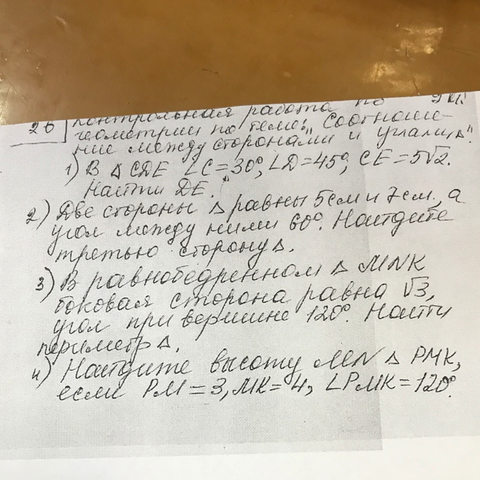 2в контрольная работа по 9кл
геометрии по теме: „Соотноше-
ние между сторонами и углами Δ".
1) В Δ CDE ∠C=30°, ∠D=45°, CE=5√2.
Найти DE.
2) Две стороны Δ равны 5см и 7см, а
угол между ними 60°. Найдите
третью сторону Δ.
3) В равнобедренном Δ MNK
боковая сторона равна √3,
угол при вершине 120°. Найти
периметр Δ.
4) Найдите высоту MN Δ PMK,
если PM=3, MK=4, ∠PMK=120°.